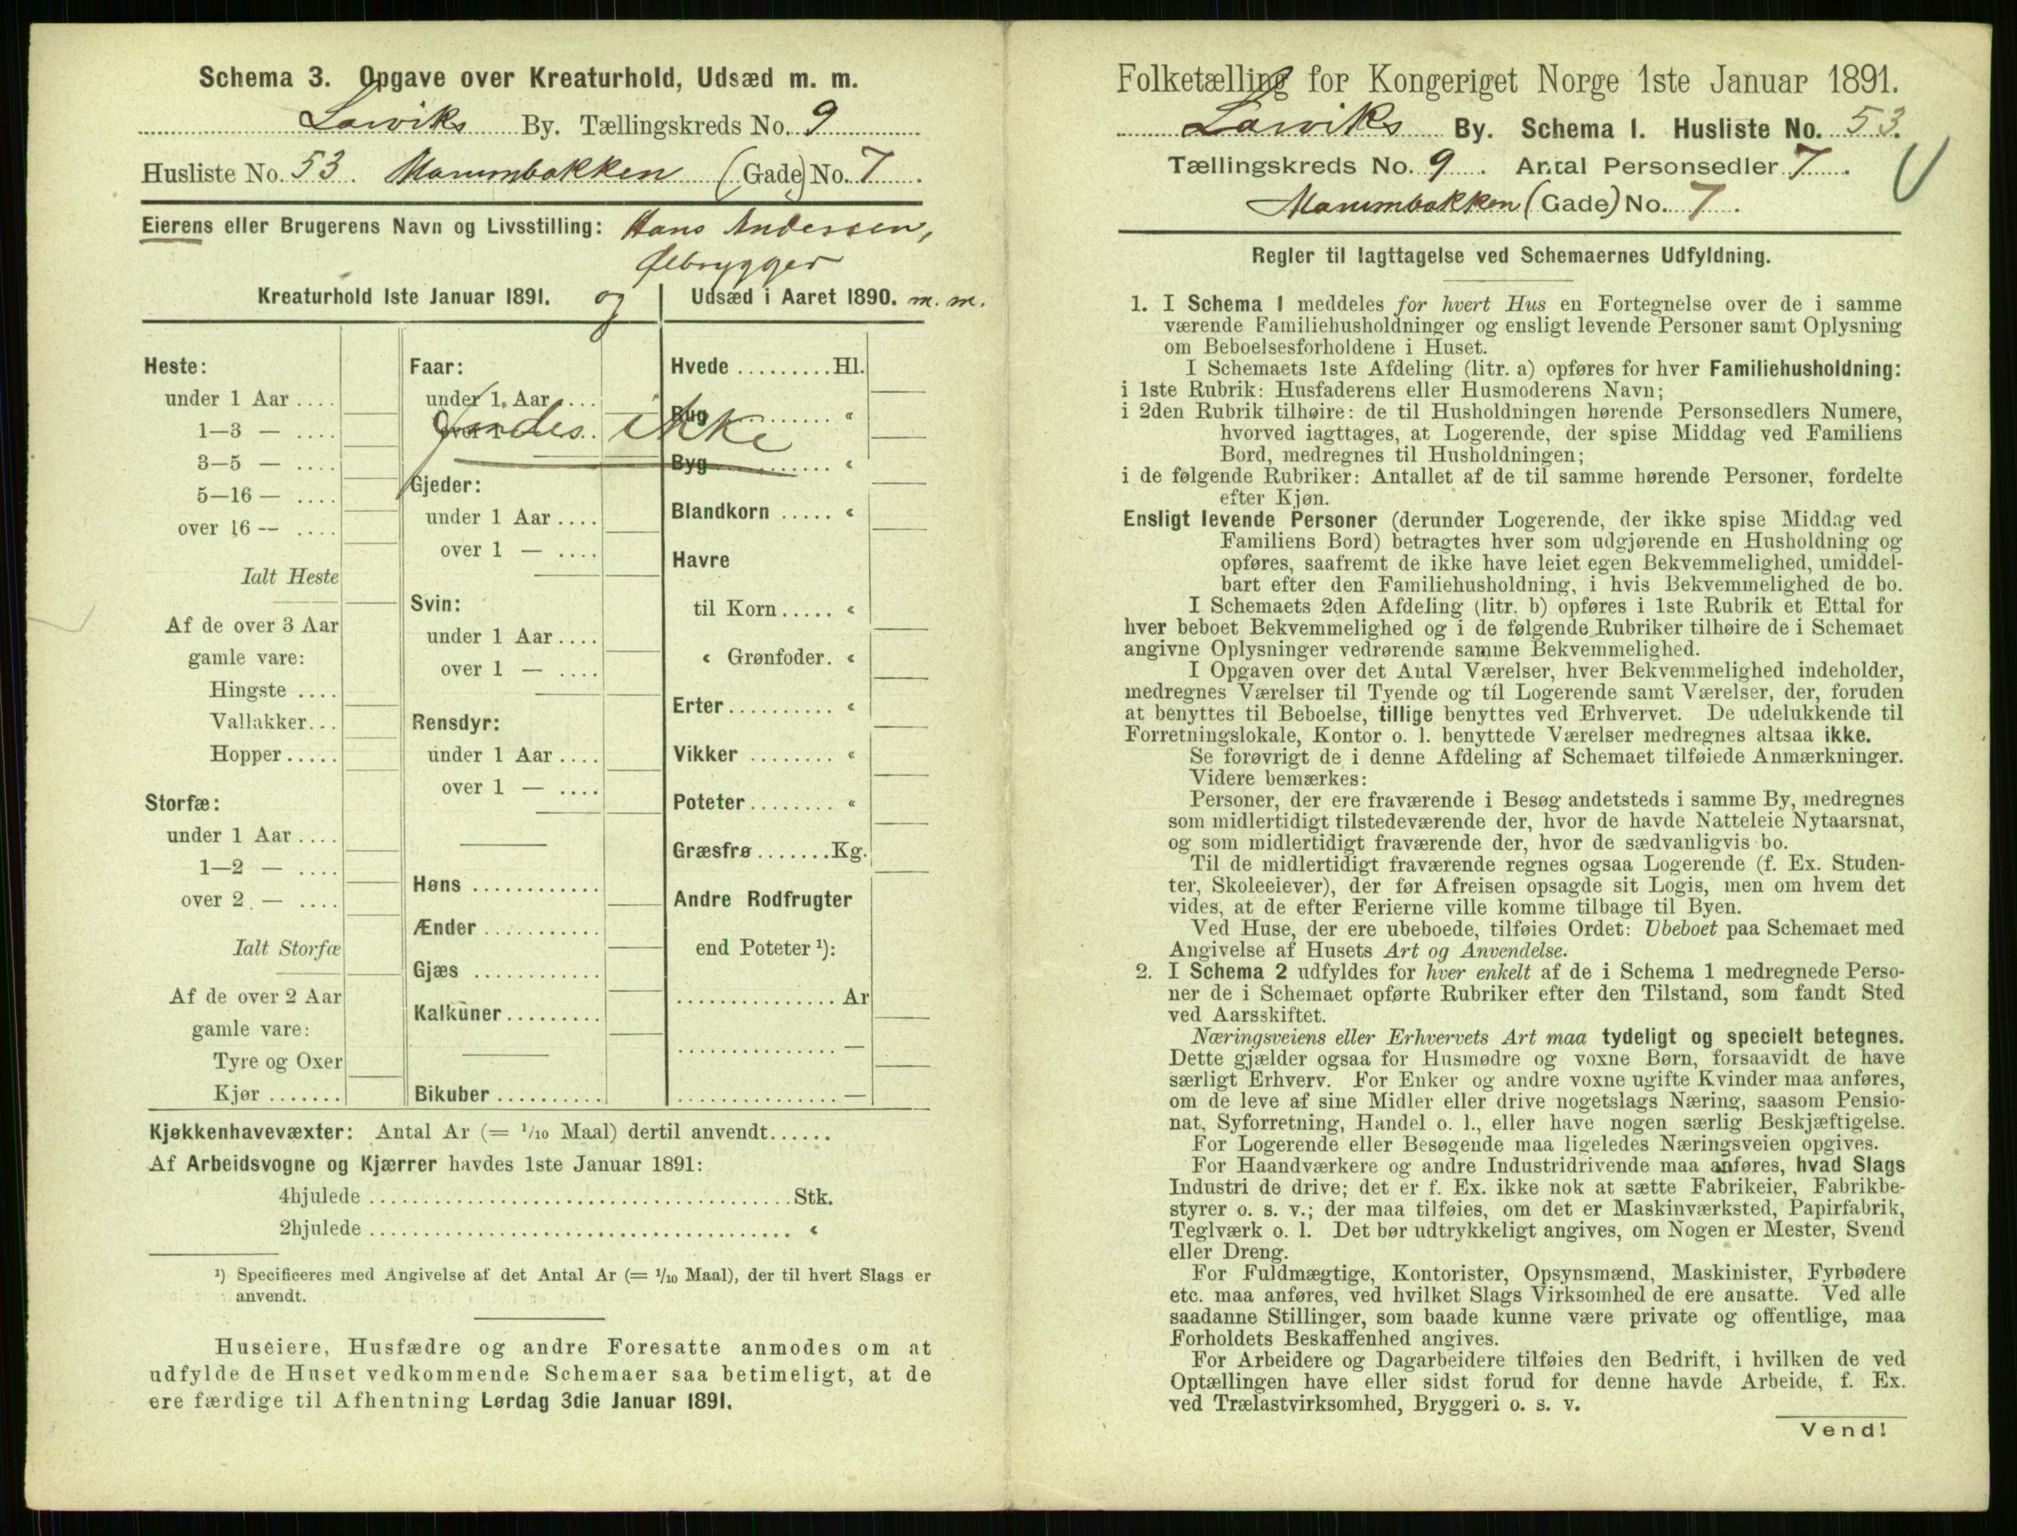 Schema 3. Opgave over Kreaturhold, Udsæd m. m.
Larviks By. Tællingskreds No. 9
Husliste No. 53 Mammbakken (Gade) No. 7
Eierens eller Brugerens Navn og Livsstilling: Hans Anderssen,
Ølbrygger
Kreaturhold 1ste Januar 1891. og Udsæd i Aaret 1890. m. m.
Heste:
under 1 Aar ....
1—3 — ....
3—5 — ....
5—16 — ....
over 16 — ....
Ialt Heste
Af de over 3 Aar
gamle vare:
Hingste ....
Vallakker...
Hopper.....
Storfæ:
under 1 Aar ....
1—2 — ....
over 2 — ....
Ialt Storfæ
Af de over 2 Aar
gamle vare:
Tyre og Oxer
Kjør .......
Faar:
under 1 Aar ....
over 1 — ....
findes ikke
Gjeder:
under 1 Aar ....
over 1 — ....
Svin:
under 1 Aar ....
over 1 — ....
Rensdyr:
under 1 Aar ....
over 1 — ....
Høns ............
Ænder ...........
Gjæs ............
Kalkuner.........
Bikuber ..........
Hvede .........Hl.
Rug ......... «
Byg ......... «
Blandkorn ..... «
Havre
til Korn ..... «
« Grønfoder. «
Erter.......... «
Vikker ........ «
Poteter........ «
Græsfrø .......Kg.
Andre Rodfrugter
end Poteter ¹):
............... Ar
............... —
............... —
Kjøkkenhavevæxter: Antal Ar (= 1/10 Maal) dertil anvendt......
Af Arbeidsvogne og Kjærrer havdes 1ste Januar 1891:
4hjulede ........................................ Stk.
2hjulede ........................................ «
¹) Specificeres med Angivelse af det Antal Ar (= 1/10 Maal), der til hvert Slags er
anvendt.
Huseiere, Husfædre og andre Foresatte anmodes om at
udfylde de Huset vedkommende Schemaer saa betimeligt, at de
ere færdige til Afhentning Lørdag 3die Januar 1891.
Folketælling for Kongeriget Norge 1ste Januar 1891.
Larviks By. Schema 1. Husliste No. 53.
Tællingskreds No. 9. Antal Personsedler 7.
Mammbakken (Gade) No. 7.
Regler til Iagttagelse ved Schemaernes Udfyldning.
1. I Schema 1 meddeles for hvert Hus en Fortegnelse over de i samme
værende Familiehusholdninger og ensligt levende Personer samt Oplysning
om Beboelsesforholdene i Huset.
I Schemaets 1ste Afdeling (litr. a) opføres for hver Familiehusholdning:
i 1ste Rubrik: Husfaderens eller Husmoderens Navn;
i 2den Rubrik tilhøire: de til Husholdningen hørende Personsedlers Numere,
hvorved iagttages, at Logerende, der spise Middag ved Familiens
Bord, medregnes til Husholdningen;
i de følgende Rubriker: Antallet af de til samme hørende Personer, fordelte
efter Kjøn.
Ensligt levende Personer (derunder Logerende, der ikke spise Middag ved
Familiens Bord) betragtes hver som udgjørende en Husholdning og
opføres, saafremt de ikke have leiet egen Bekvemmelighed, umiddel-
bart efter den Familiehusholdning, i hvis Bekvemmelighed de bo.
I Schemaets 2den Afdeling (litr. b) opføres i 1ste Rubrik et Ettal for
hver beboet Bekvemmelighed og i de følgende Rubriker tilhøire de i Schemaet
angivne Oplysninger vedrørende samme Bekvemmelighed.
I Opgaven over det Antal Værelser, hver Bekvemmelighed indeholder,
medregnes Værelser til Tyende og til Logerende samt Værelser, der, foruden
at benyttes til Beboelse, tillige benyttes ved Erhvervet. De udelukkende til
Forretningslokale, Kontor o. l. benyttede Værelser medregnes altsaa ikke.
Se forøvrigt de i denne Afdeling af Schemaet tilføiede Anmærkninger.
Videre bemærkes:
Personer, der ere fraværende i Besøg andetsteds i samme By, medregnes
som midlertidigt tilstedeværende der, hvor de havde Natteleie Nytaarsnat,
og som midlertidigt fraværende der, hvor de sædvanligvis bo.
Til de midlertidigt fraværende regnes ogsaa Logerende (f. Ex. Studen-
ter, Skoleeiever), der før Afreisen opsagde sit Logis, men om hvem det
vides, at de efter Ferierne ville komme tilbage til Byen.
Ved Huse, der ere ubeboede, tilføies Ordet: Ubeboet paa Schemaet med
Angivelse af Husets Art og Anvendelse.
2. I Schema 2 udfyldes for hver enkelt af de i Schema 1 medregnede Perso-
ner de i Schemaet opførte Rubriker efter den Tilstand, som fandt Sted
ved Aarsskiftet.
Næringsveiens eller Erhvervets Art maa tydeligt og specielt betegnes.
Dette gjælder ogsaa for Husmødre og voxne Børn, forsaavidt de have
særligt Erhverv. For Enker og andre voxne ugifte Kvinder maa anføres,
om de leve af sine Midler eller drive nogetslags Næring, saasom Pensio-
nat, Syforretning, Handel o. l., eller have nogen særlig Beskjæftigelse.
For Logerende eller Besøgende maa ligeledes Næringsveien opgives.
For Haandværkere og andre Industridrivende maa anføres, hvad Slags
Industri de drive; det er f. Ex. ikke nok at sætte Fabrikeier, Fabrikbe-
styrer o. s. v.; der maa tilføies, om det er Maskinværksted, Papirfabrik,
Teglværk o. l. Det bør udtrykkeligt angives, om Nogen er Mester, Svend
eller Dreng.
For Fuldmægtige, Kontorister, Opsynsmænd, Maskinister, Fyrbødere
etc. maa anføres, ved hvilket Slags Virksomhed de ere ansatte. Ved alle
saadanne Stillinger, som baade kunne være private og offentlige, maa
Forholdets Beskaffenhed angives.
For Arbeidere og Dagarbeidere tilføies den Bedrift, i hvilken de ved
Optællingen have eller sidst forud for denne havde Arbeide, f. Ex.
ved Trælastvirksomhed, Bryggeri o. s. v.
Vend!